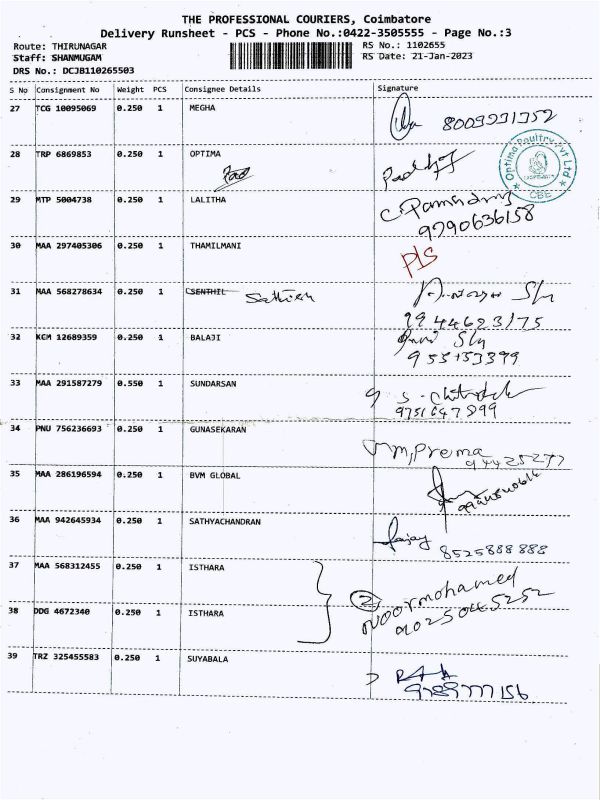 THE PROFESSIONAL COURIERS, Coimbatore
Delivery Runsheet - PCS - Phone No.:0422-3505555 - Page No.:3
Route: THIRUNAGAR RS No.: 1102655
Staff: SHANMUGAM RS Date: 21-Jan-2023
DRS No.: DCJB110265503
S No Consignment No Weight PCS Consignee Details Signature
27 TCG 10095069 0.250 1 MEGHA
28 TRP 6869853 0.250 1 OPTIMA
Optima Poultry Pvt Ltd
CBE
29 MTP 5004738 0.250 1 LALITHA
9790636158
30 MAA 297405306 0.250 1 THAMILMANI
P/S
31 MAA 568278634 0.250 1 CSENTHIL Sathish
9944623175
32 KCM 12689359 0.250 1 BALAJI
33 MAA 291587279 0.550 1 SUNDARSAN
9751647899
34 PNU 756236693 0.250 1 GUNASEKARAN
M, Prema
35 MAA 286196594 0.250 1 BVM GLOBAL
36 MAA 942645934 0.250 1 SATHYACHANDRAN
Sanjay
8525888888
37 MAA 568312455 0.250 1 ISTHARA
2
Noormohamed
38 DDG 4672340 0.250 1 ISTHARA
9025045252
39 TRZ 325455583 0.250 1 SUYABALA
9789777156